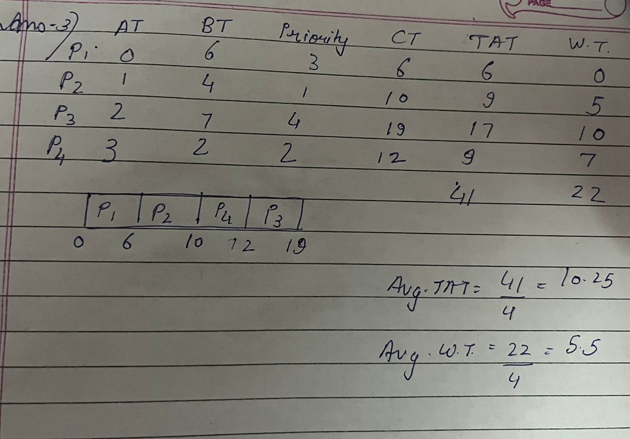 PAGE
Ans-3) AT BT Priority CT TAT W.T.
P1. 0 6 3 6 6 0
P2 1 4 1 10 9 5
P3 2 7 4 19 17 10
P4 3 2 2 12 9 7
41 22
P1 P2 P4 P3
0 6 10 12 19
Avg. TAT = 41/4 = 10.25
Avg. W.T. = 22/4 = 5.5